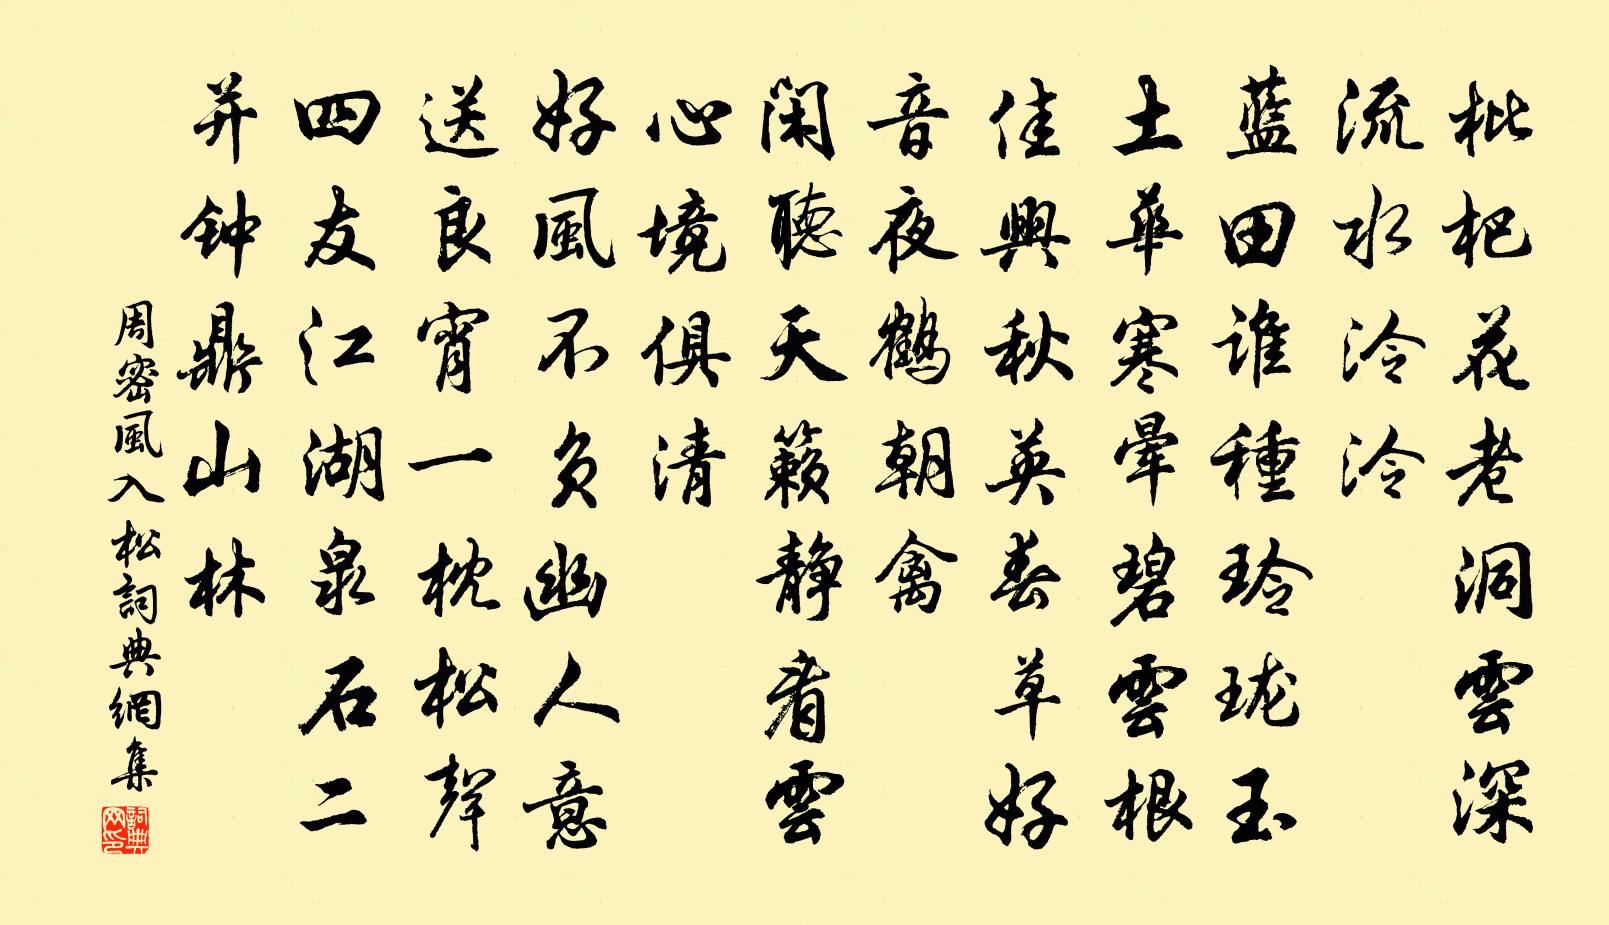 枇杷花老洞雲深
流水泠泠
藍田谁種玲珑玉
土華寒暈碧雲根
佳興秋英春草好
音夜鶴朝禽
閑聽天籟静看雲
心境俱清
好風不負幽人意
送良宵一枕松聲
四友江湖泉石二
并钟鼎山林
周密風入松詞典網集
詞典网印